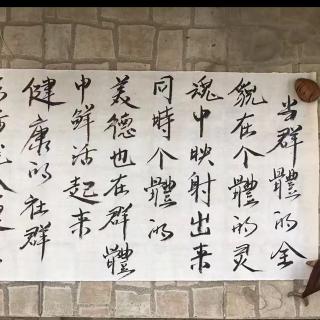 当群體的全
貌在个體的灵
魂中映射出来
同時个體的
美德也在群體
中鲜活起来
健康的社群